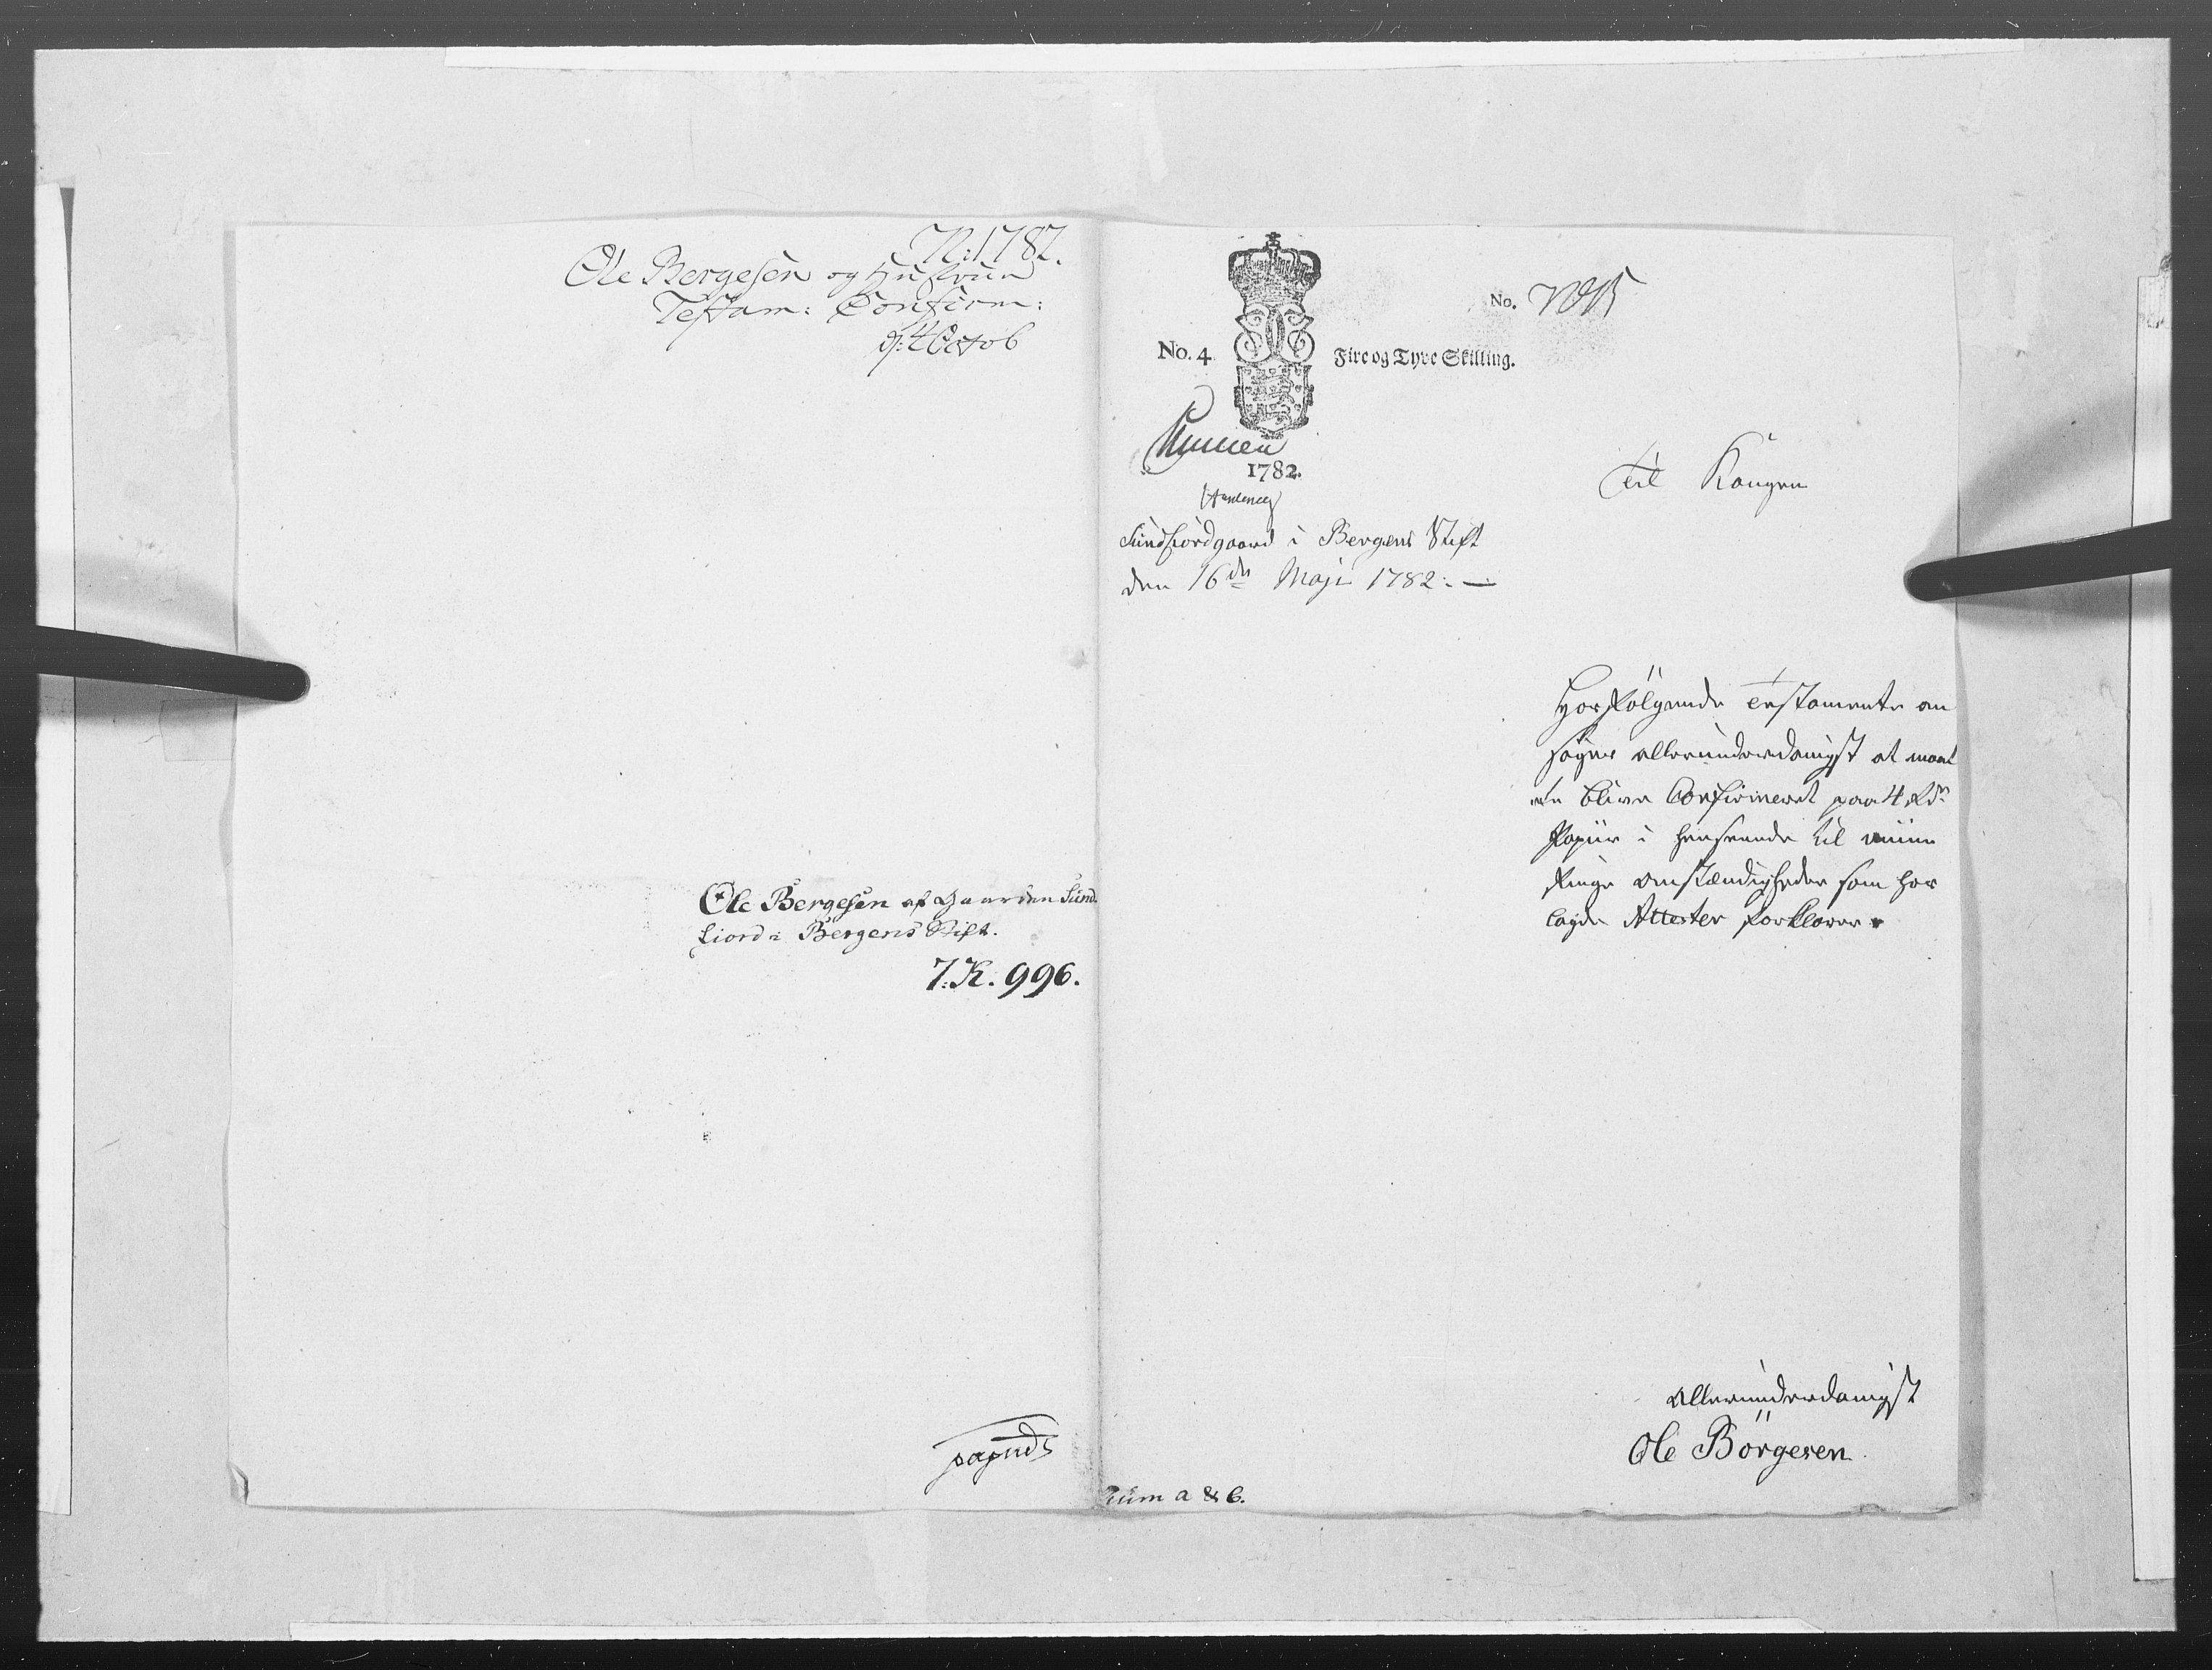 N: 1782.
Ole Bergesen og Hustrue
Testam: Confirm:
d: 4 Octob
Ole Bergesen af Gaarden Sund-
fiord i Bergens Stift.
7. K. 996.
No. 4
Fire og Tyve Skilling.
No.
1782.
Sundfiordgaard i Bergens Stift
den 16de Maji 1782. —
Til Kongen
Hosfölgende Testamente an
söges allerunderdanigst at maat
te blive Confirmeret paa 4 Rdr
Papiir i henseende til miine
ringe omstændigheder som hos
lagde Attester forklarer.
Allerunderdanigst
Ole Börgesen.
a & b.